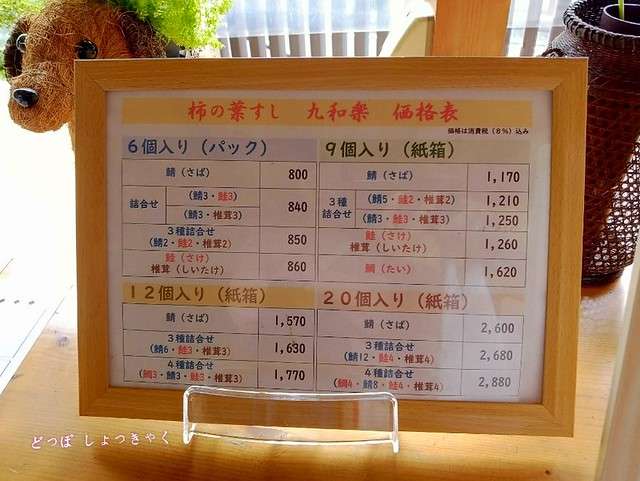 柿の葉すし 九和楽 価格表
価格は消費税(8%)込み
6個入り(パック)
鯖(さば) 800
詰合せ (鯖3・鮭3) 840
(鯖3・椎茸3)
3種詰合せ
(鯖2・鮭2・椎茸2) 850
鮭(さけ)
椎茸(しいたけ) 860
9個入り(紙箱)
鯖(さば) 1,170
3種
詰合せ
(鯖5・鮭2・椎茸2) 1,210
(鯖3・鮭3・椎茸3) 1,250
鮭(さけ)
椎茸(しいたけ) 1,260
鯛(たい) 1,620
12個入り(紙箱)
鯖(さば) 1,570
3種詰合せ
(鯖6・鮭3・椎茸3) 1,630
4種詰合せ
(鯛3・鯖3・鮭3・椎茸3) 1,770
20個入り(紙箱)
鯖(さば) 2,600
3種詰合せ
(鯖12・鮭4・椎茸4) 2,680
4種詰合せ
(鯛4・鯖8・鮭4・椎茸4) 2,880
どっぽ しょっきゃく